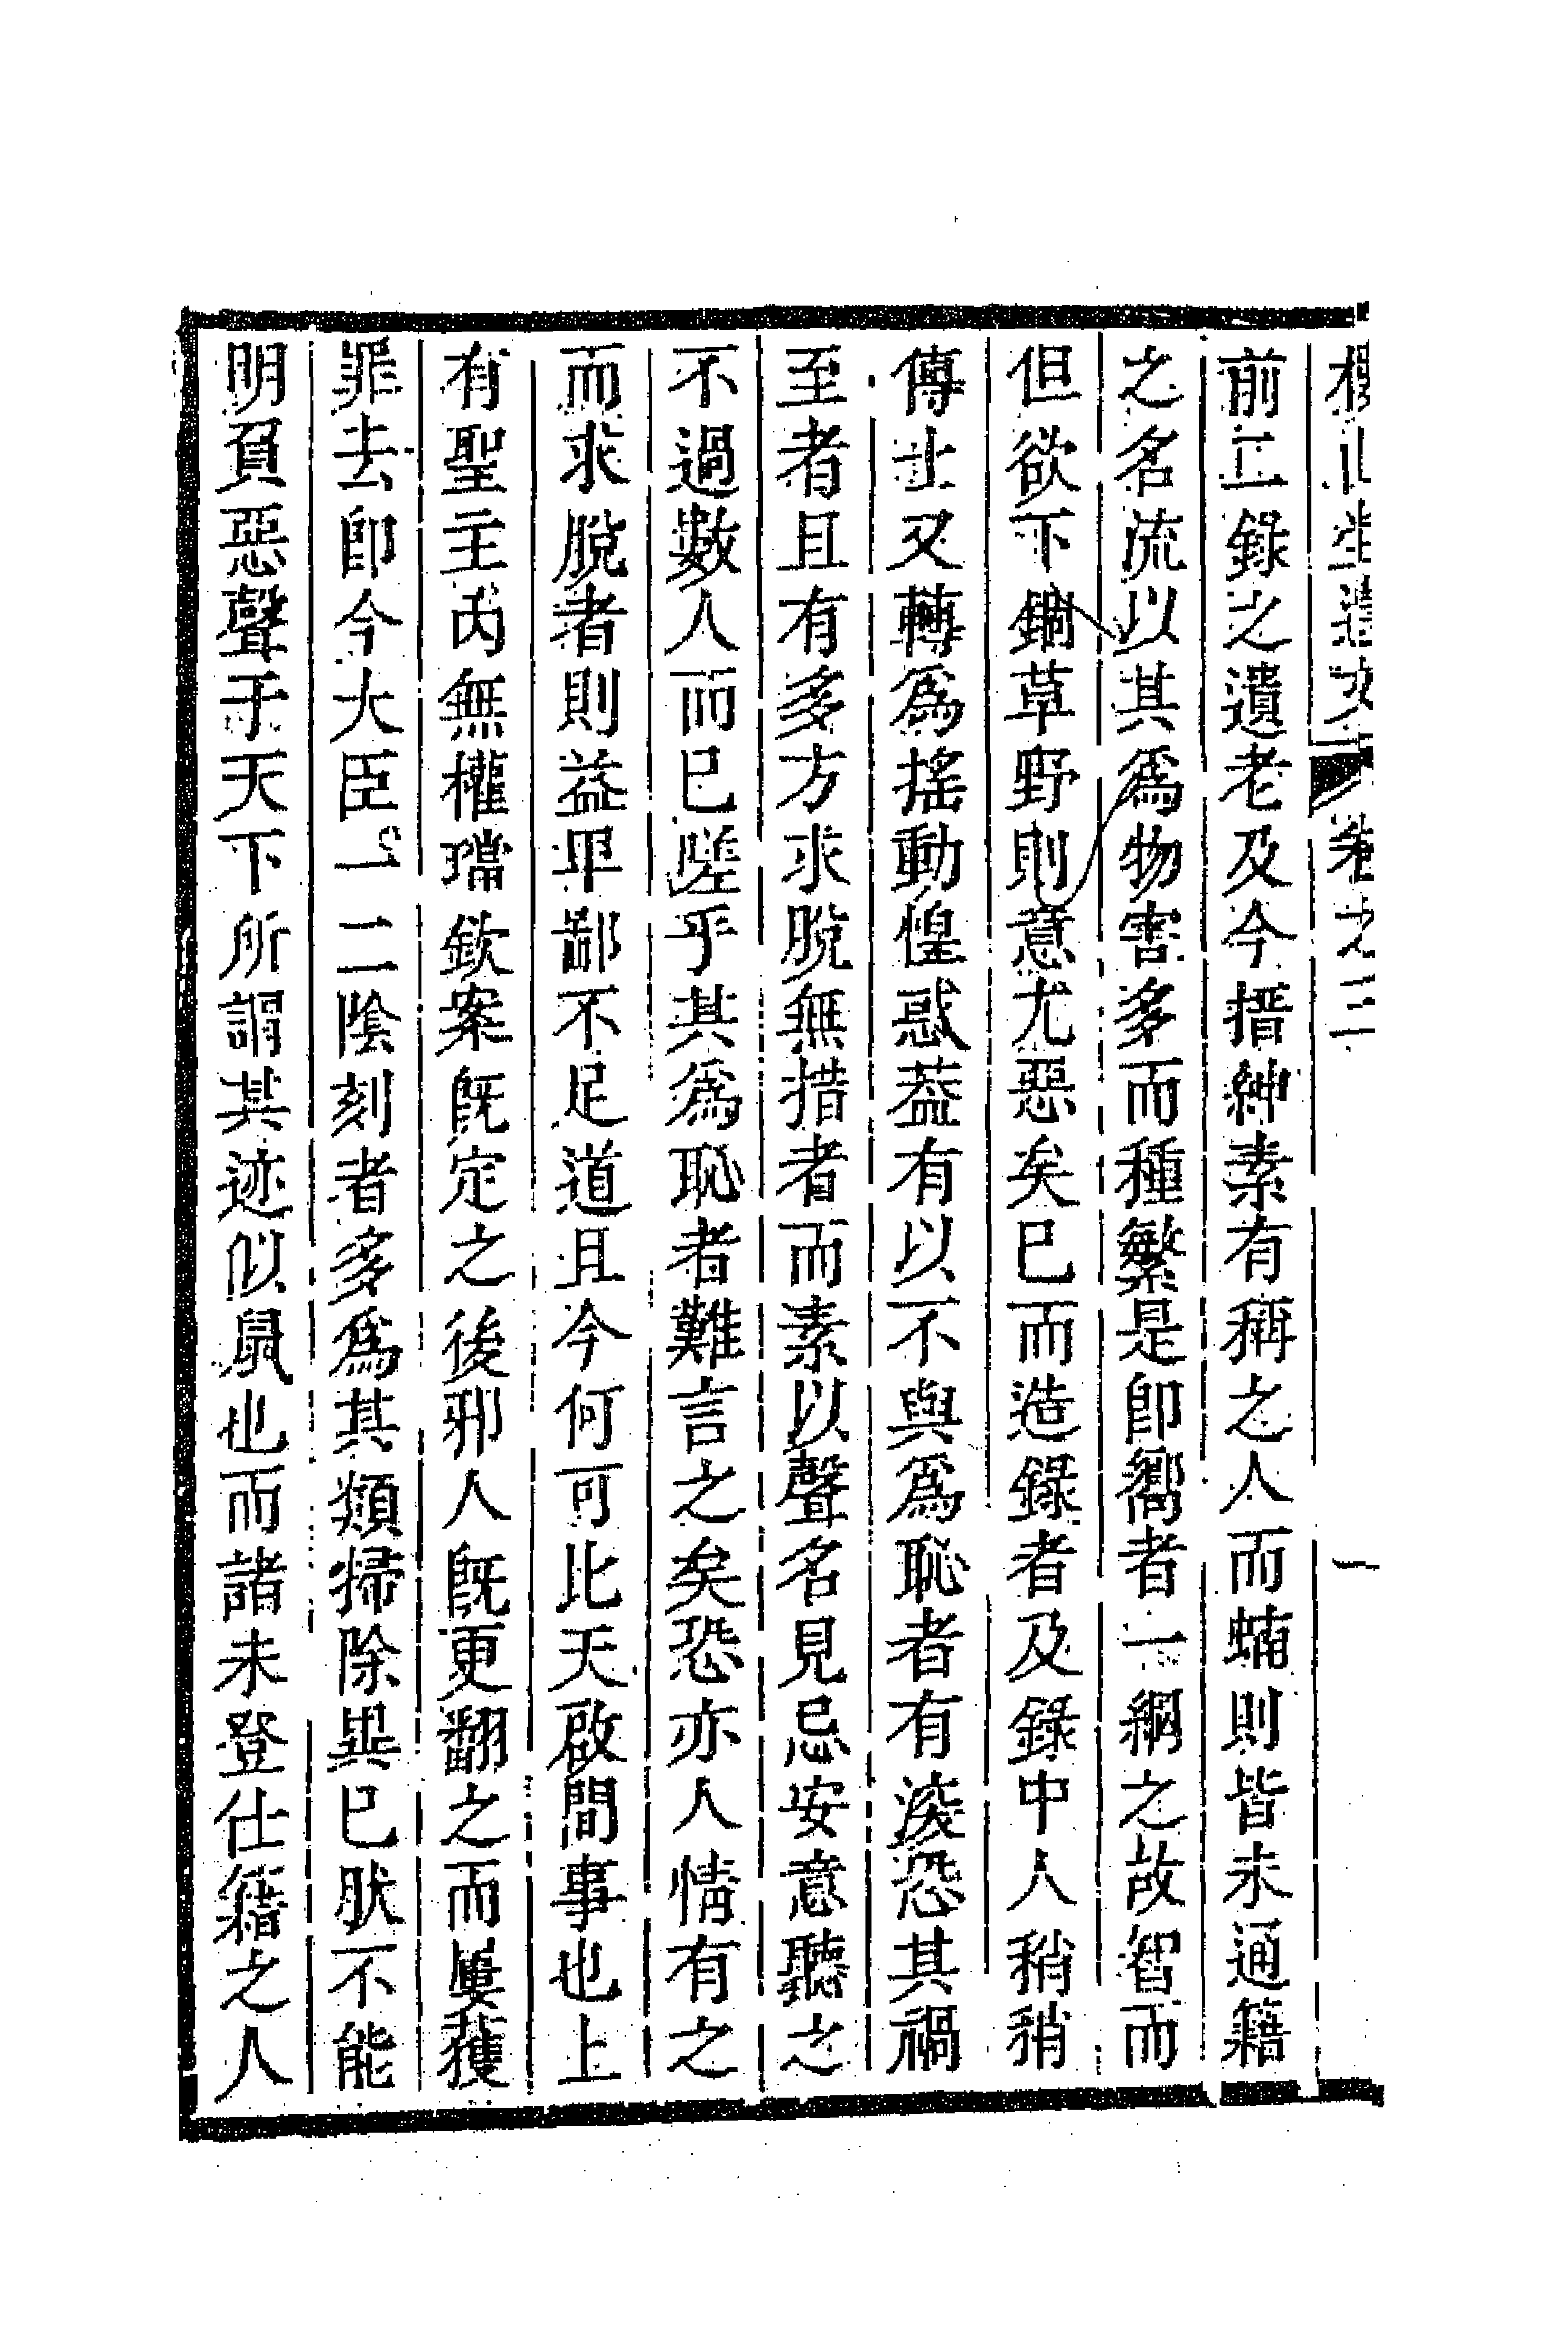 樓山堂遺文 卷之三 一
前二錄之遺老及今搢紳素有稱之人而蝻則皆未通籍
之名流以其爲物害多而種繁是卽嚮者一網之故智而
但欲下錮草野則意尤惡矣已而造錄者及錄中人稍稍
傳出又轉爲搖動惶惑葢有以不與爲恥者有深恐其禍
至者且有多方求脫無措者而素以聲名見忌安意聽之
不過數人而已嗟乎其爲恥者難言之矣恐亦人情有之
而求脫者則益卑鄙不足道且今何可比天啟間事也上
有聖主内無權璫欽案旣定之後邪人旣更翻之而屢獲
罪去卽今大臣一二陰刻者多爲其類掃除異已肰不能
明負惡聲于天下所謂其迹似鼠也而諸未登仕籍之人